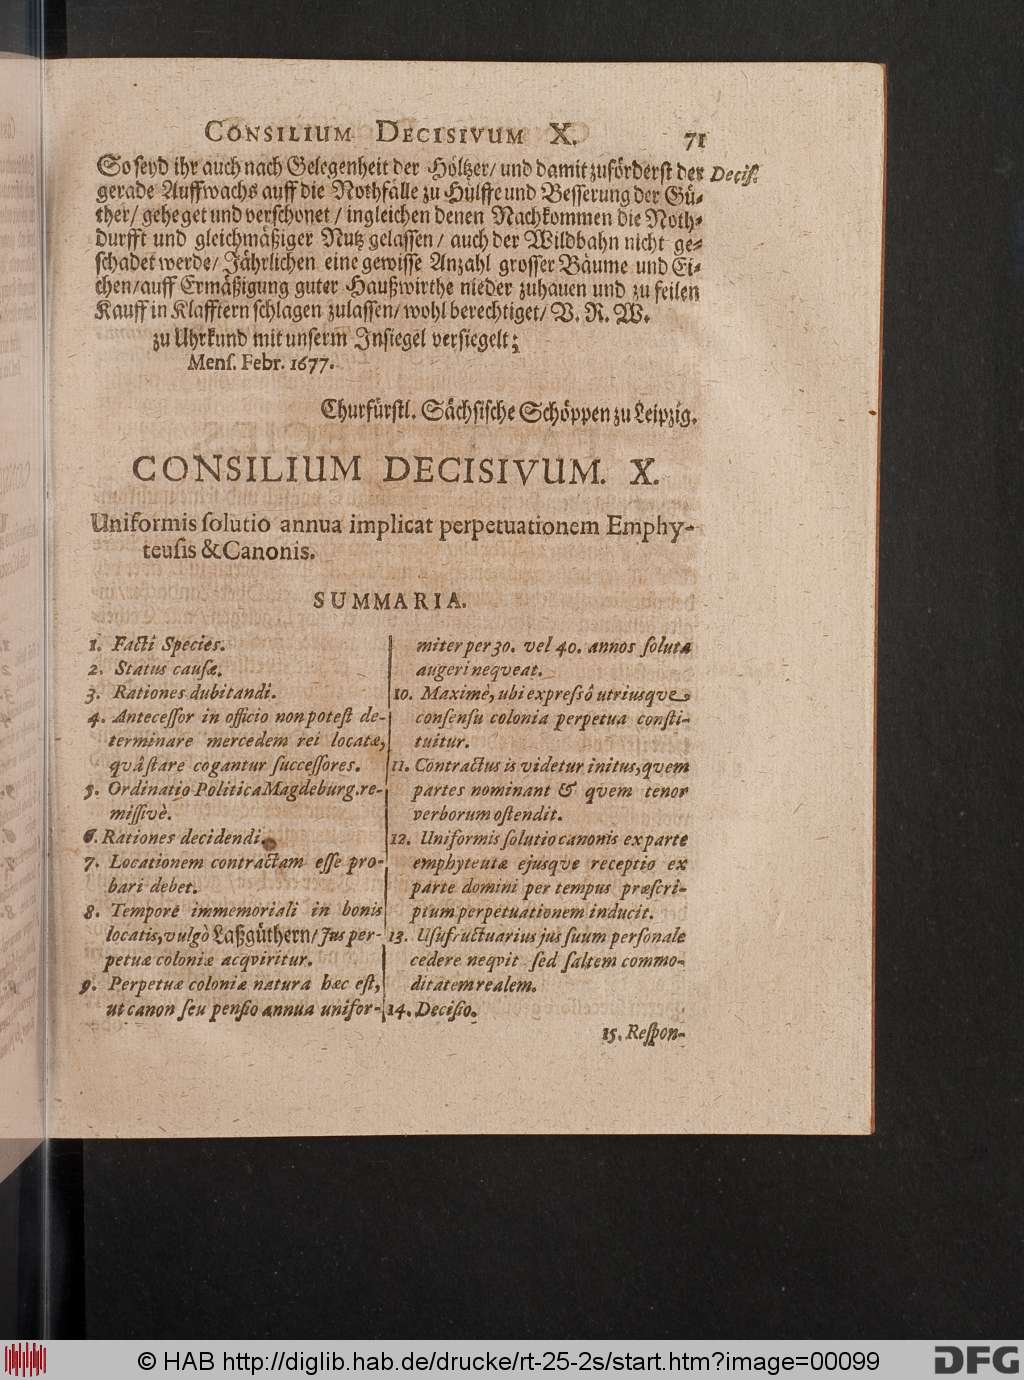 CONSILIUM DECISIVUM X. 71
So seyd ihr auch nach Gelegenheit der Höltzer/ und damit zuförderst der Decis.
gerade Auffwachs auff die Nothfälle zu Hülffe und Besserung der Gü-
ther/ geheget und verschonet / ingleichen denen Nachkommen die Noth-
durfft und gleichmäßiger Nutz gelassen / auch der Wildbahn nicht ge-
schadet werde/ Jährlichen eine gewisse Anzahl grosser Bäume und Ei-
chen/auff Ermäßigung guter Haußwirthe nieder zuhauen und zu feilen
Kauff in Klafftern schlagen zulassen/ wohl berechtiget/ V. R. W.
zu Uhrkund mit unserm Insiegel versiegelt;
Mens. Febr. 1677.
Churfürstl. Sächsische Schöppen zu Leipzig.
CONSILIUM DECISIVUM. X.
Uniformis solutio annua implicat perpetuationem Emphy-
teusis & Canonis.
SUMMARIA.
1. Facti Species.
2. Status causæ.
3. Rationes dubitandi.
4. Antecessor in officio non potest de-
terminare mercedem rei locatæ,
quâ stare cogantur successores.
5. Ordinatio Politica Magdeburg. re-
missivè.
6. Rationes decidendi.
7. Locationem contractam esse pro-
bari debet.
8. Tempore immemoriali in bonis
locatis, vulgò Laßgüthern/ Jus per-
petuæ coloniæ acqviritur.
9. Perpetuæ coloniæ natura hæc est,
ut canon seu pensio annua unifor-
miter per 30. vel 40. annos soluta
augeri neqveat.
10. Maximè, ubi expressô utriusqve
consensu colonia perpetua consti-
tuitur.
11. Contractus is videtur initus, qvem
partes nominant & qvem tenor
verborum ostendit.
12. Uniformis solutio canonis ex parte
emphyteutæ ejusqve receptio ex
parte domini per tempus præscri-
ptum perpetuationem inducit.
13. Usufructuarius jus suum personale
cedere neqvit sed saltem commo-
ditatem realem.
14. Decisio.
15. Respon-
© HAB http://diglib.hab.de/drucke/rt-25-2s/start.htm?image=00099
DFG